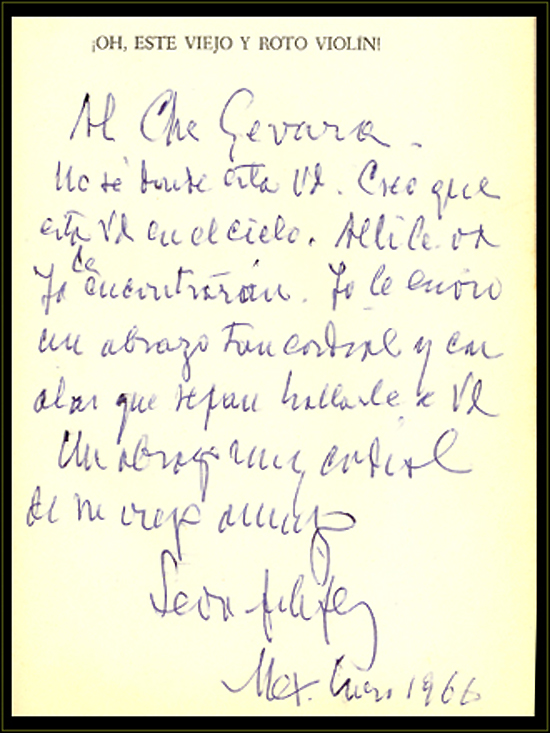 ¡OH, ESTE VIEJO Y ROTO VIOLÍN!
Al Che Gevara.
No sé donde esta Vd. Creo que
esta Vd en el cielo. Alli
Ya le encontrarán. Yo le envio
un abrazo tan cordial y con
alas que sepan hallarle a Vd
Un abrazo muy cordial
de su viejo amigo
León Felipe
Mex. Enero 1966